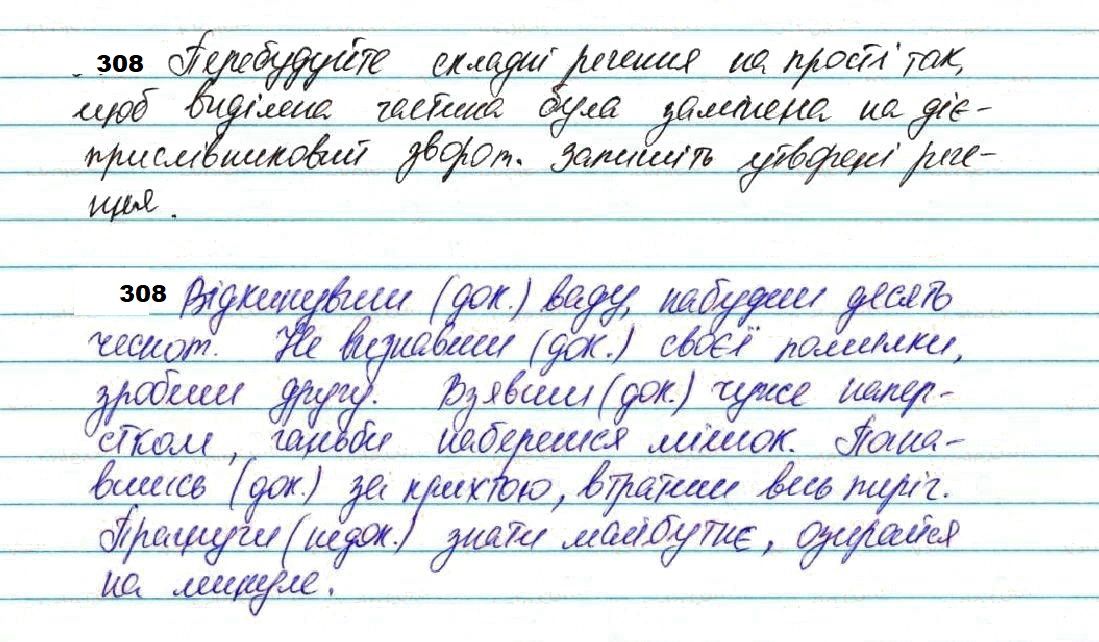 308 Перебудуйте складні речення на прості так,
щоб виділена частина була замінена на діє-
прислівниковий зворот. Запишіть утворені рече-
ння.
308 Відкинувши (док.) ваду, набудеш десять
чеснот. Не визнавши (док.) своєї помилки,
зробиш другу. Взявши (док.) чуже напер-
стком, ганьби наберешся мішок. Погна-
вшись (док.) за крихтою, втратиш весь пиріг.
Прагнучи (недок.) знати майбутнє, озирайся
на минуле.